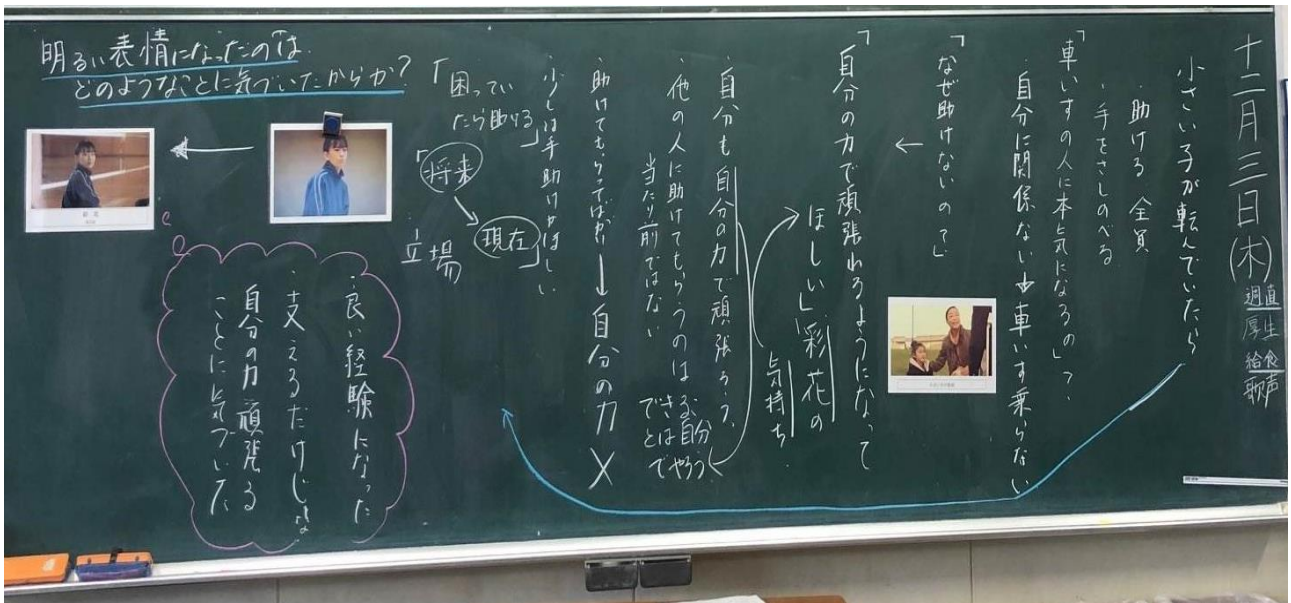 十二月三日(木)
週直
厚生
給食
歌声
小さい子が転んでいたら
・助ける 全員
・手をさしのべる
「車いすの人に本気になるの」?
自分に関係ない→車いす乗らない
「なぜ助けないの?」
「自分の力で頑張れるようになって
ほしい」彩花の
気持ち
・自分も自分の力で頑張ろう。
・他の人に助けてもらうのは
当たり前ではない
できることは自分でやろう
・助けてもらってばかり→自分の力 ×
・少しは手助けがほしい
「困ってい
たら助ける」
「将来
現在」
立場
明るい表情になったのは
どのようなことに気づいたからか?
・良い経験になった
・支えるだけじゃな
自分の力 頑張る
ことに気づいた